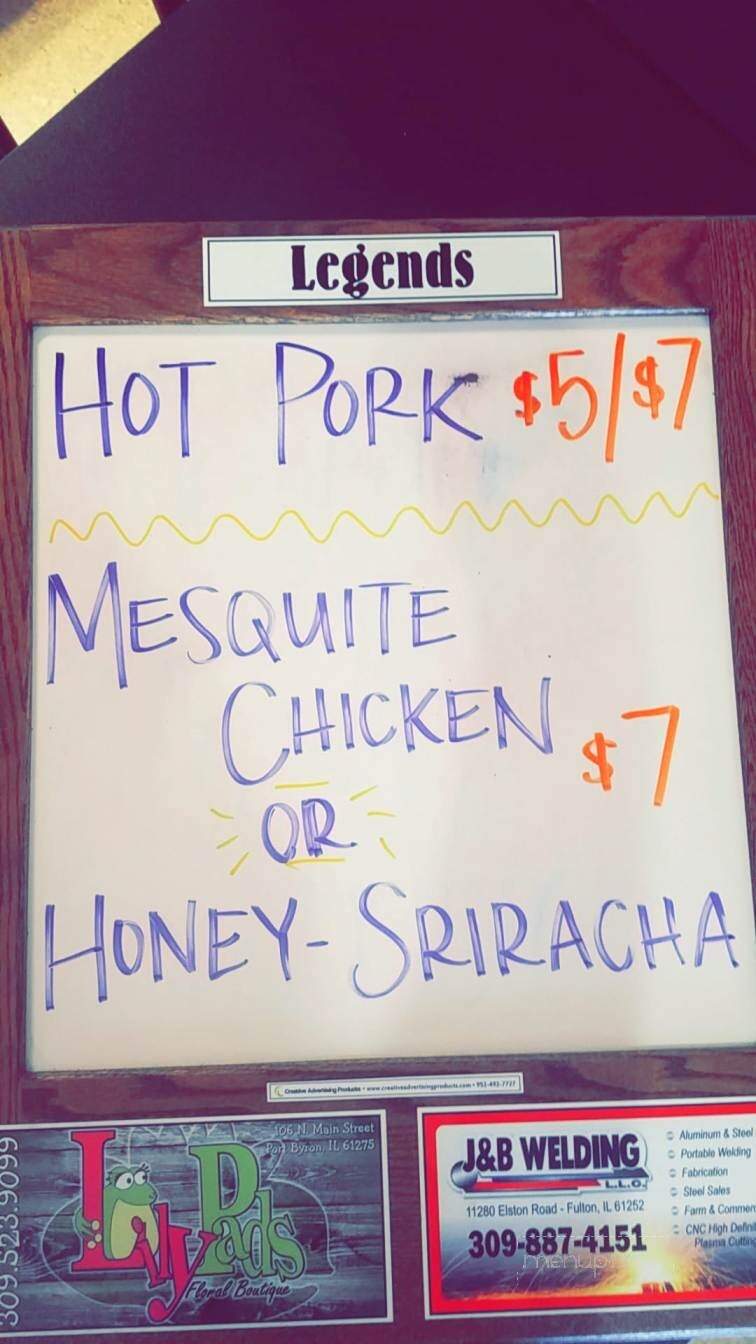 Legends
HOT PORK $5/$7
MESQUITE
CHICKEN $7
OR
HONEY-SRIRACHA
Creative Advertising Products • www.creativeadvertisingproducts.com • 952-492-7727
106 N. Main Street
Port Byron, IL 61275
309.523.9099
Lily Pads
Floral Boutique
J&B WELDING
L.L.C.
11280 Elston Road - Fulton, IL 61252
309-887-4151
Aluminum & Steel
Portable Welding
Fabrication
Steel Sales
Farm & Commer
CNC High Defini
Plasma Cutting
menup